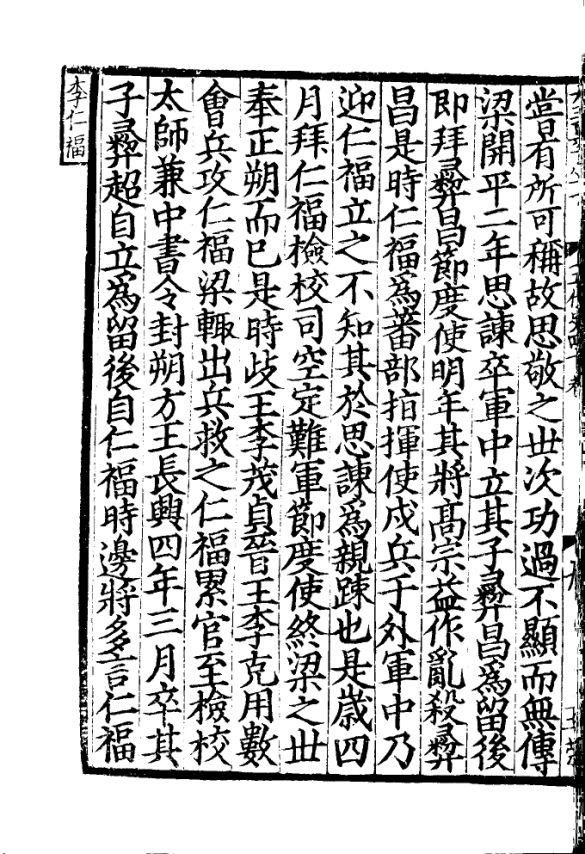 嘗有所可稱故思敬之世次功過不顯而無傳
梁開平二年思諫卒軍中立其子彛昌爲留後
即拜彛昌節度使明年其將髙宗益作亂殺彛
昌是時仁福爲蕃部指揮使戍兵于外軍中乃
迎仁福立之不知其於思諫爲親踈也是歲四
月拜仁福檢校司空定難軍節度使終梁之世
奉正朔而巳是時歧王李茂貞晉王李克用數
會兵攻仁福梁輙出兵救之仁福累官至檢校
太師兼中書令封朔方王長興四年三月卒其
子彛超自立爲留後自仁福時邊將多言仁福
李仁福